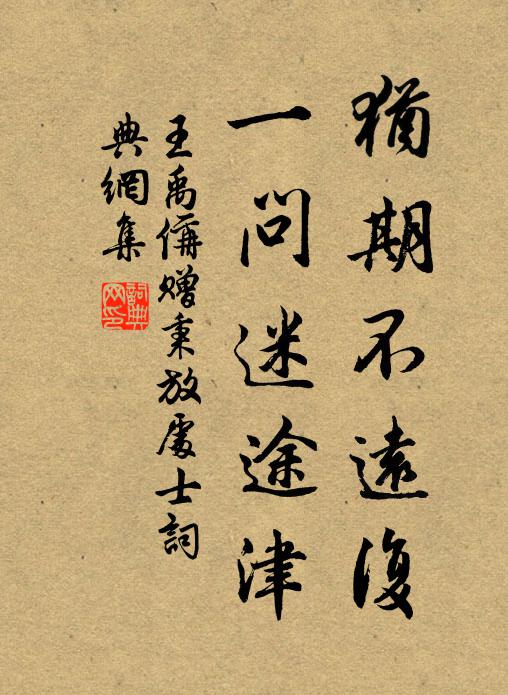 猶期不遠復
一問迷途津
王禹偁贈秉放處士詞
典網集
詞典
网印